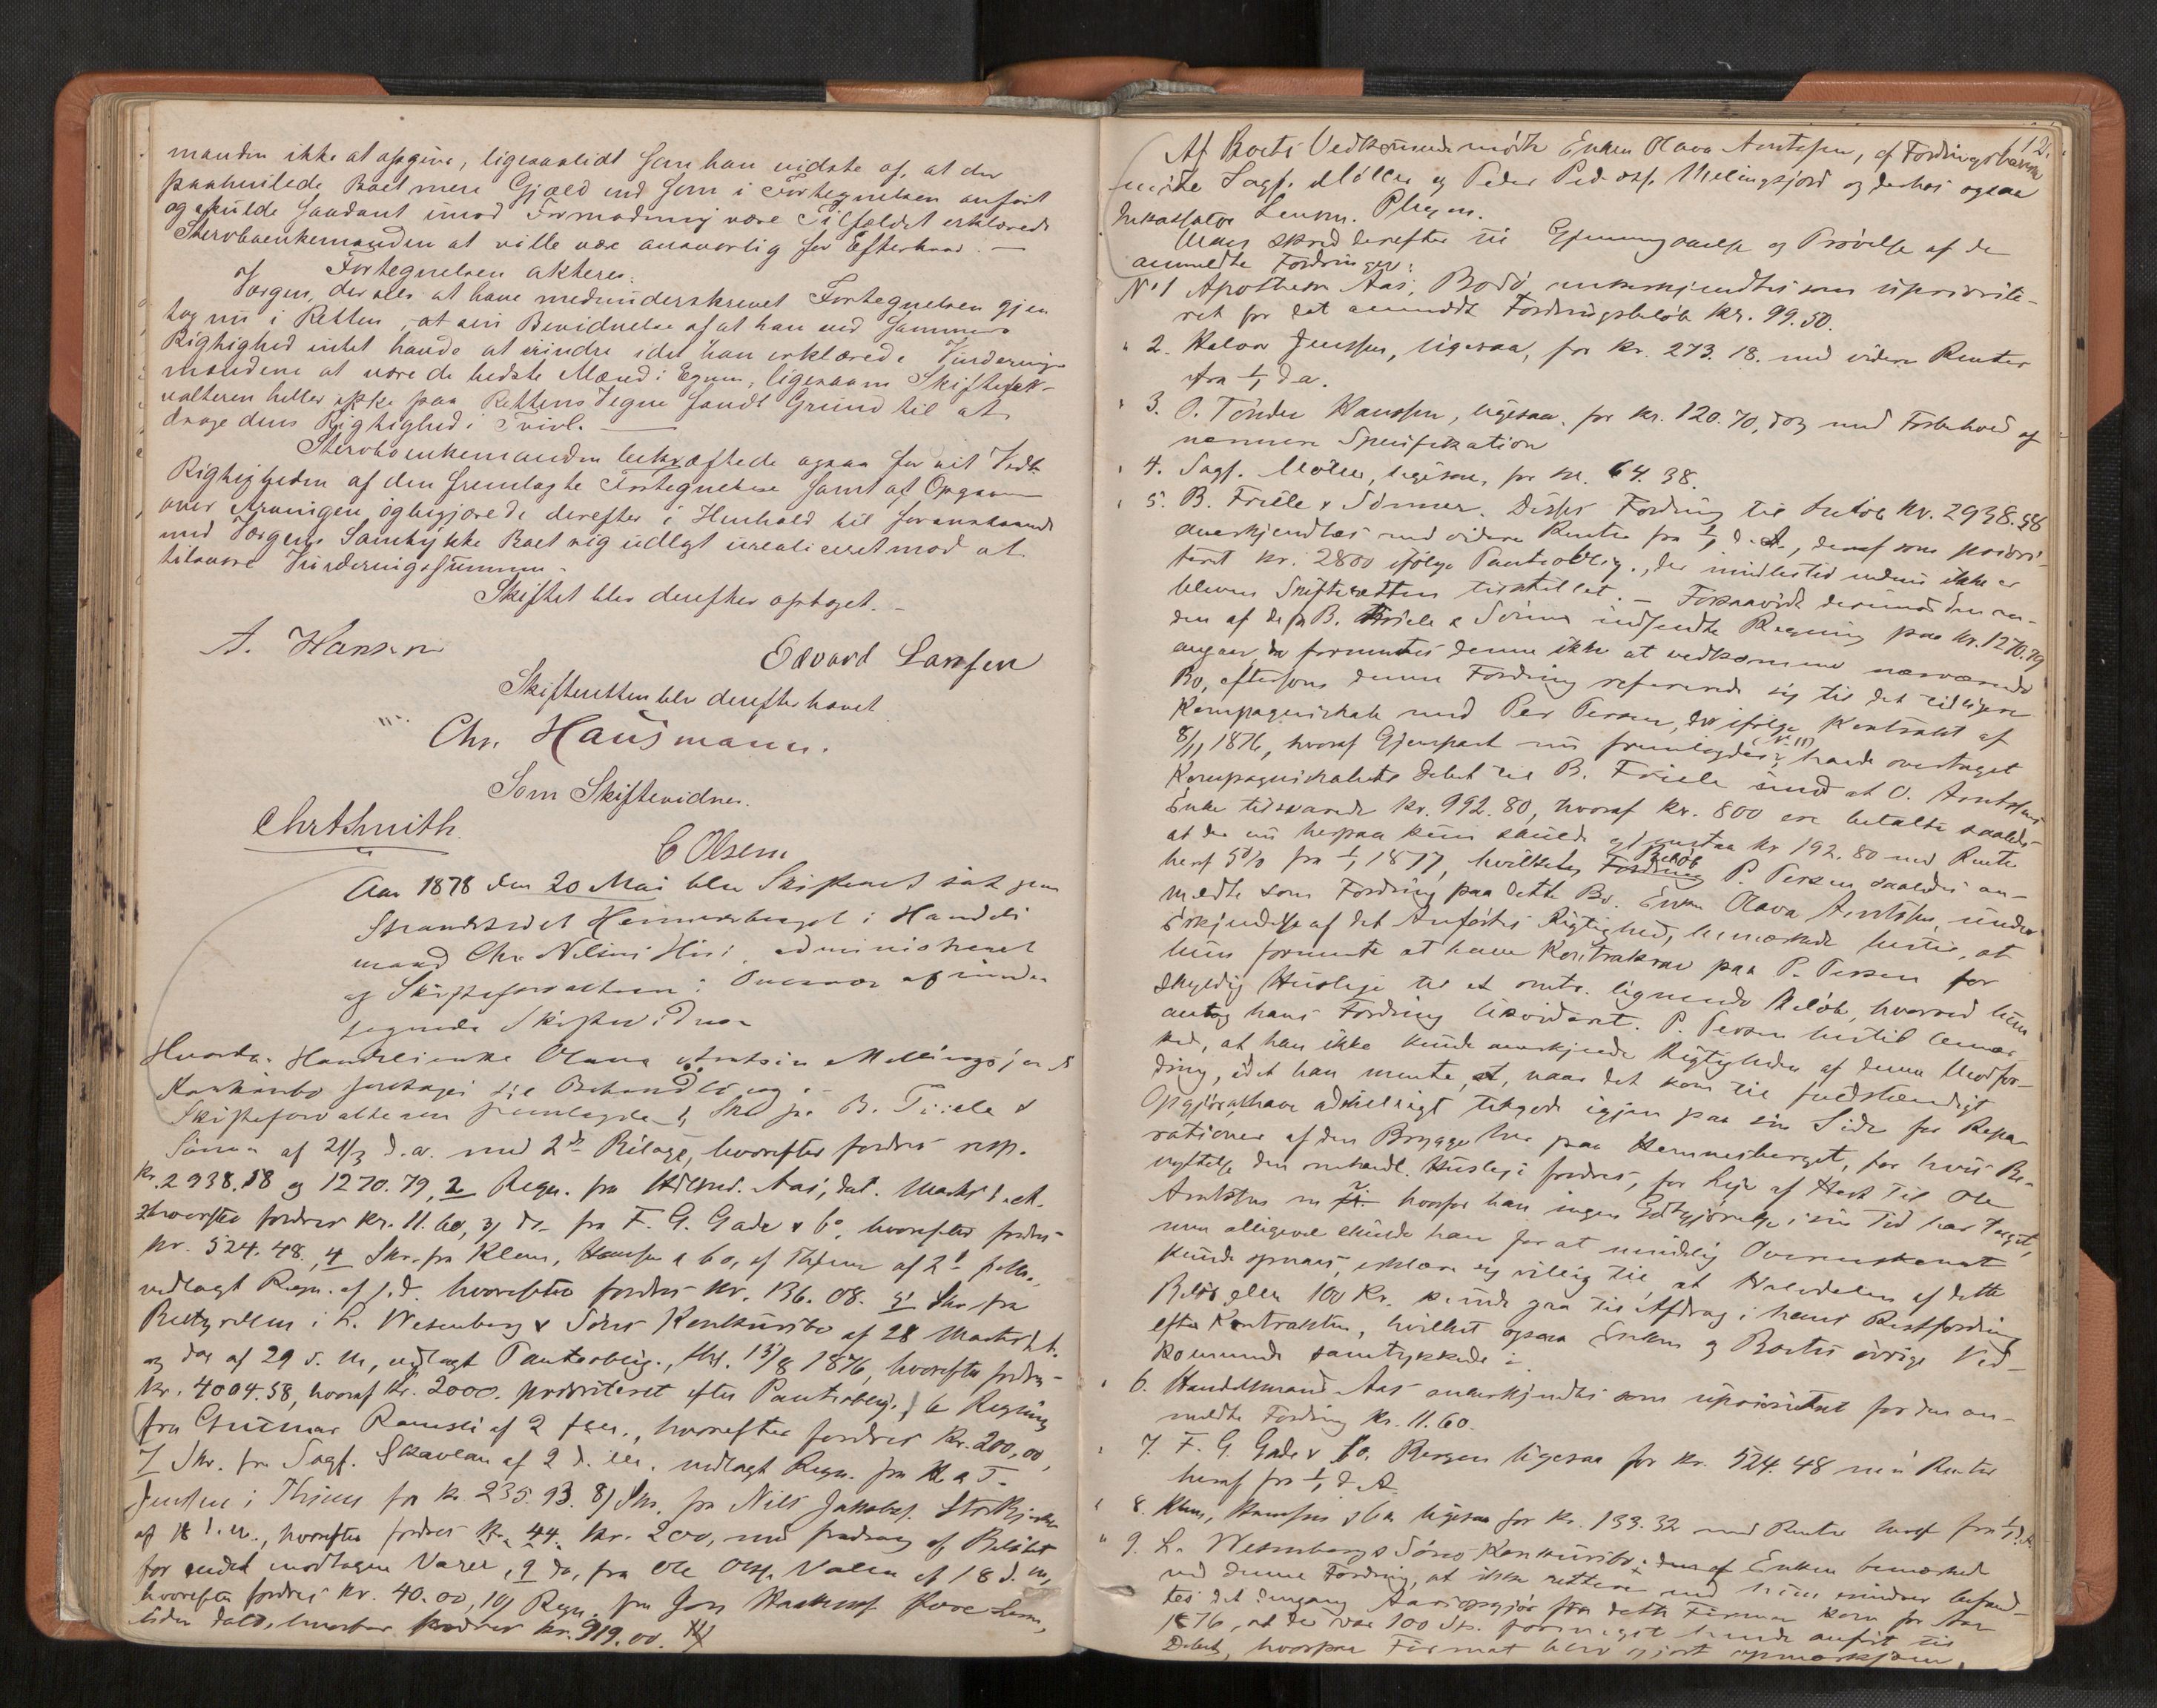 manden ikke at opgive, ligesaalidt som han vidste af, at der
paahvilede Boet mere Gjæld end som i Fortegnelsen anført
og skulde saadant imod Formodning være Tilfældet erklærede
Sterboenkemanden at ville være ansvarlig for Efterkrav. —
Fortegnelsen akteres.
Værgen, der sees at have medunderskrevet Fortegnelsen gjen
tog nu i Retten, at sin Bevidnelse af at han ved Sammes
Rigtighed intet havde at erindre idet han erklærede Vurderings
mændene at være de bedste Mænd i Egnen, ligesom Skiftefor-
valteren heller ikke paa Rettens Vegne fandt Grund til at
drage dens Rigtighed i Tvivl. —
Sterboenkemanden bekræftede ogsaa for sit Vedk.
Rigtigheden af den fremlagte Fortegnelse samt af Opgaven
over Arvingen og begjærede derefter i Henhold til foranstaaende
med Værgens Samtykke Boet sig udlagt urealiseret mod at
tilsvare Vurderingssummen.
Skiftet blev derefter optaget. —
A. Hansen Edvard Larssen
Skifteretten blev derefter hævet
Chr. Hausmann.
Som Skiftevidner.
Chr A Smith.
C Olsen
Aar 1878 den 20 Mai blev Skifteret sat paa
Strandstedet Hemnesberget i Handels
mand Chr. Nilsens Hus, administreret
af Skifteforvalteren i Overvær af under
tegnede Skiftevidner
Hvorda: Handelsenke Olava Arntsen Mellingsjord
Konkursbo foretages til Behandling. —
Skifteforvalteren fremlagde 1, Skr fra B. Friele &
Sønner af 21/3 d.a. med 2de Bilage, hvorefter fordres resp.
Kr. 2938.58 og 1270.79, 2 Regn. fra Hdlsmd. Aas, dat. Marts d.A.
hvorefter fordres kr. 11.60, 3) do fra F. G. Gade & Co, hvorefter fordres
kr. 524.48, 4 Skr. fra Klem, Hanssen & Co, af Thjem af 2d f. M.,
vedlagt Regn. af s.d. hvorefter fordres Kr. 136.08. 5' Skr fra
Bestyrelsen i L. Wesenberg & Søns Konkursbo af 28 Marts d.A.
og do af 29 s. M, vedlagt Panteoblig., thgl. 15/8 1876, hvorefter fordres
kr. 4004.58, hvoraf kr. 2000. prioriteret efter Panteoblig., 6 Regning
fra Gunnar af 2 hvorefter fordres Kr. 200,00,
7 Skr. fra Sagf. Skavlan af 2 d. M. vedlagt Regn. fra H. & T.
Jenssen i Thjem for kr. 235.93. 8) Skr. fra Nils Jakobs.
af 18 d. M., hvorefter fordres Kr. 44. kr. 200, med fradrag af Beløbet
for endel modtagne Varer, 9 do, fra Ole Ols. Valen af 18 d. M,
hvorefter fordres kr. 40.00, 10) Regn. fra
uden Dato, hvorefter fordres kr. 919.00.
112.
Af Boets Vedkommende mødte Enken Olava Arntssen, af Fordringshaverne
mødte Sagf. Møller og Peder Mellingsjord og derhos ogsaa
Inkassator Lensm.
Man skred derefter til Gjennemgaaelse og Prøvelse af de
anmeldte Fordringer:
No 1 Apotheker Aas, Bodø, anerkjendtes som uprioriteret
for det anmeldte Fordringsbeløb kr. 99.50.
" 2. Halvor Jenssen, ligesaa, for kr. 273.18. med videre Renter
fra 1/1 d.a.
" 3. O. Tønder Hanssen, ligesaa, for kr. 120.70, dog med Forbehold af
nærmere Specifikation
" 4. Sagf. Møller, ligesaa, for kr. 64.38.
" 5. B. Friele & Sønner. Disses Fordring til Beløb kr. 2938.58
anerkjendtes med videre Renter fra 1/1 d.A., deraf som priori-
teret kr. 2800 ifølge Panteoblig., der imidlertid endnu ikke er
bleven Skifteretten tilstillet. — Forsaavidt derimod den an-
den af de fra B. Friele & Sønner indsendte Regning paa kr. 1270.79
angaar, da formentes denne ikke at vedkomme nærværende
Bo, eftersom denne Fordring refererede sig til det tidligere
Kompagniskab med Per Persen, der ifølge Kontrakt af
8/11 1876, hvoraf Gjenpart nu fremlagdes (N. 11), havde overtaget
Kompagniskabets Debet til B. Friele imod at O. Arntssens
Enke tilsvarede kr. 992.80, hvoraf kr. 800 ere betalte saaledes
at der nu herpaa kun skulde gjenstaa kr 192.80 med Rente
heraf 5% fra 1/1 1877, hvilket Beløb Fordring P. Persen saaledes an-
meldte som Fordring paa dette Bo. Enken Olava Arntssen, under
Erkjendelse af det Anførtes Rigtighed, bemærkede hertil, at
hun formente at have Kontrakrav paa P. Persen for
skyldig Husleje til et omtr. lignende Beløb, hvorved hun
antog hans Fordring likvideret. P. Persen hertil bemær-
ked, at han ikke kunde anerkjende Rigtigheden af denne Modfor-
dring, idet han mente, at, naar det kom til fuldstændigt
Opgjør, at have adskilligt tilgode igjen paa sin Side for Repa-
rationer af den Brygge her paa Hemnesberget, for hvis Be-
nyttelse den omhandl. Husleje fordres, for Leje af Hest til Ole
Arntssen m v. hvorfor han ingen Godtgjørelse i sin Tid har taget,
men alligevel skulde han for at mindelig Overenskomst
kunde opnaaes, erklære sig villig til at Halvdelen af dette
Beløb eller 100 Kr. kunde gaa til Afdrag i hans Restfordring
efter Kontrakten, hvilket ogsaa Enken og Boets øvrige Ved-
kommende samtykkede i.
" 6. Handelsmand Aas anerkjendtes som uprioriteret for den an-
meldte Fordring kr. 11.60.
" 7. F. G. Gade & Co. Bergen ligesaa for kr. 524.48 m. Renter
heraf fra 1/1 d.A.
" 8. Klem, Hanssen & Co ligesaa for kr. 133.32 med Renter heraf fra 1/1 d.A.
" 9. L. Wesenberg & Søns Konkursbo; Enken bemærkede
ved denne Fordring, at ikke rettere end hun erindrer befand-
tes det dengang Aarsopgjør fra dette Firma kom for Aar
1876, at der var 100 Sp. formeget havde anført til
Debet, hvorpaa Firmaet blev gjort opmærksom,